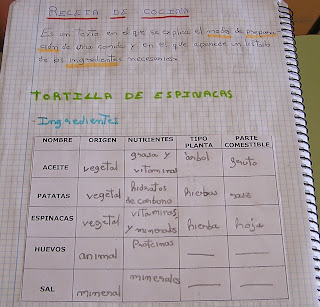 RECETA DE COCINA
Es un texto en el que se explica el modo de prepara-
ción de una comida y en el que aparece un listado
de los ingredientes necesarios.
TORTILLA DE ESPINACAS
- Ingredientes
NOMBRE ORIGEN NUTRIENTES TIPO PLANTA PARTE COMESTIBLE
ACEITE vegetal grasa y vitaminas árbol fruto
PATATAS vegetal hidratos de carbono hierbas raiz
ESPINACAS vegetal vitaminas y minerales hierba hoja
HUEVOS animal Proteínas — —
SAL mineral minerales — —